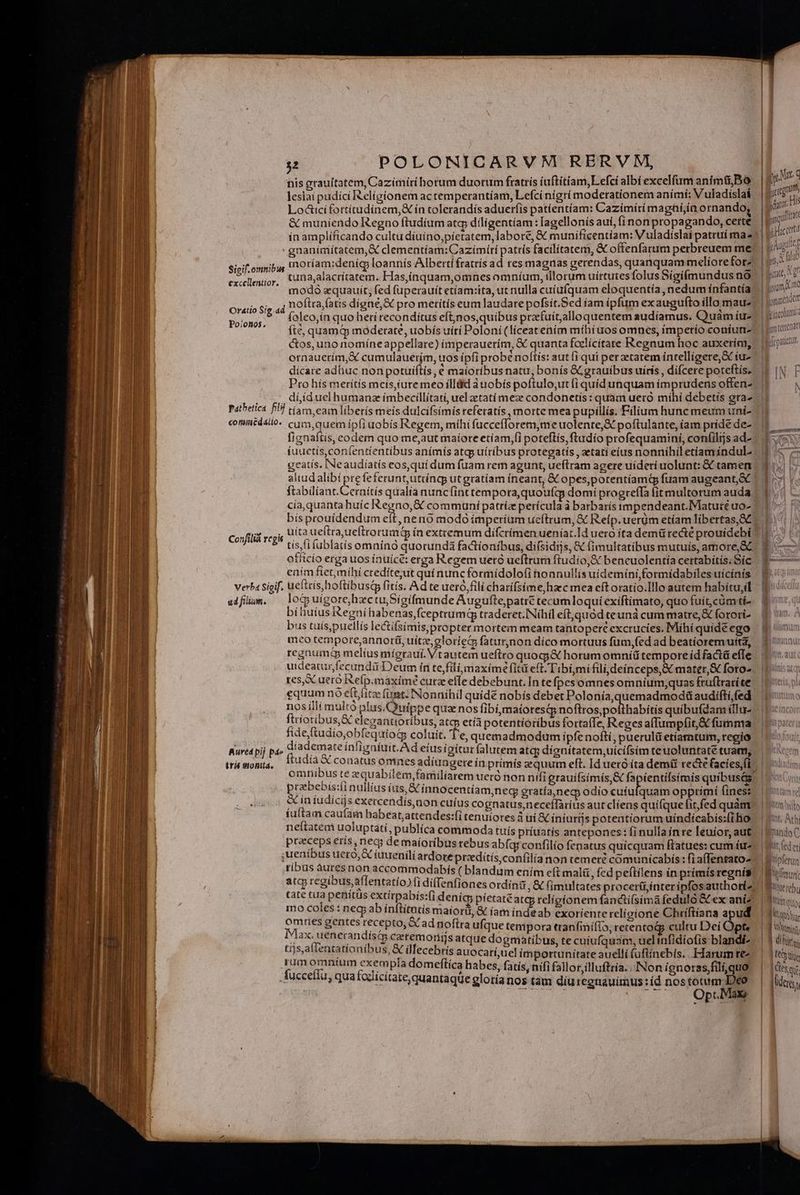 32 POLONICARVM RERVM,
nis grauitatem, Cazimiri horum duorum fratris iustitiam, Lesci albi excelsum animũ, Bo
leslai pudici Religionem ac temperantiam, Lesci nigri moderationem animi: Vuladislai
Loctici fortitudinem, & in tolerandis aduersis patientiam: Cazimiri magni, in ornando,
& muniendo Regno studium atq; diligentiam: Iagellonis aui, si non propagando, certè
in amplificando cultu diuino, pietatem, labore, & munificentiam: Vuladislai patrui ma-
gnanimitatem, & clementiam: Cazimiri patris facilitatem, & offensarum perbreuem me
Sigis. omnibus
excellentior.
moriam: deniq; Ioannis Alberti fratris ad res magnas gerendas, quanquam meliore for-
tuna, alacritatem. Has, inquam, omnes omnium, illorum uirtutes solus Sigismundus nõ
modò æquauit, sed superauit etiam: ita, ut nulla cuiusquam eloquentia, nedum infantia
Oratio Sig. ad
Polonos.
nostra, satis dignè, & pro meritis eum laudare possit. Sed iam ipsum ex augusto illo mau-
soleo, in quo heri reconditus est, nos, quibus præfuit, alloquentem audiamus. Quàm iu-
stè, quamq; moderatè, uobis uiri Poloni (liceat enim mihi uos omnes, imperio coniun-
ctos, uno nomine appellare) imperauerim, & quanta fœlicitate Regnum hoc auxerim,
ornauerim, & cumulauerim, uos ipsi probè nostis: aut si qui per ætatem intelligere, & iu-
dicare adhuc non potuistis, è maioribus natu, bonis & grauibus uiris, discere potestis.
Pro his meritis meis, iure meo illud à uobis postulo, ut si quid unquam imprudens offen-
di, id uel humanæ imbecillitati, uel ætati meæ condonetis: quam uerò mihi debetis gra-
Pathetica filij
commẽdatio.
tiam, eam liberis meis dulcissimis referatis, morte mea pupillis. Filium hunc meum uni-
cum, quem ipsi uobis Regem, mihi successorem, me uolente, & postulante, iam pride de-
signastis, eodem quo me, aut maiore etiam, si potestis, studio prosequamini, consilijs ad-
iuuetis, consentientibus animis atq; uiribus protegatis, ætati eius nonnihil etiam indul-
geatis. Ne audiatis eos, qui dum suam rem agunt, uestram agere uideri uolunt: & tamen
aliud alibi præ se ferunt, utrinq; ut gratiam ineant, & opes, potentiamq; suam augeant, &
stabiliant. Cernitis qualia nunc sint tempora, quousq; domi progressa sit multorum auda
cia, quanta huic Regno, & communi patriæ pericula à barbaris impendeant. Maturè uo-
bis prouidendum est, ne nõ modò imperium uestrum, & Resp. uerùm etiam libertas, &
Consiliũ regis
uita uestra, ueniat in extremum discrimen. Id uero ita demũ rectè prouidebi
tis, si sublatis omnino quorundã factionibus, dissidijs, & simultatibus mutuis, amore, &
officio erga uos inuicẽ: erga Regem uerò uestrum studio, & beneuolentia certabitis. Sic
enim fiet, mihi credite, ut qui nunc formidolosi nonnullis uidemini, formidabiles uicinis
Verba Sigis.
ad filium.
uestris, hostibusq; sitis. Ad te uerò, fili charissime, hæc mea est oratio. Illo autem habitu, il
loq; uigore, hæc tu, Sigismunde Auguste, patrẽ tecum loqui existimato, quo fuit, cùm ti-
bi huius Regni habenas, sceptrumq; traderet. Nihil est, quòd te unà cum matre, & sorori-
bus tuis, puellis lectissimis, propter mortem meam tantopere excrucies. Mihi quidẽ ego
meo tempore, annorũ, uitæ, gloriæq; satur, non dico mortuus sum, sed ad beatiorem uitã,
regnumq; melius migraui. Vt autem uestro quoq; & horum omniũ tempore id factũ esse
uideatur, secundũ Deum in te, fili, maximè sitũ est. Tibi, mi fili, deinceps, & mater, & soro-
res, & uerò Resp. maximè curæ esse debebunt. In te spes omnes omnium, quas frustrari te
equum nõ est, sitæ sunt. Nonnihil quidẽ nobis debet Polonia, quemadmodũ audisti, sed
nos illi multò plus. Quippe quæ nos sibi, maioresq; nostros, posthabitis quibusdam illu-
strioribus, & elegantioribus, atq; etiã potentioribus fortasse, Reges assumpsit, & summa
fide, studio, obsequioq; coluit. Te, quemadmodum ipse nosti, puerulũ etiamtum, regio
Aurea pij pa-
tris monita.
diademate insigniuit. Ad eius igitur salutem atq; dignitatem, uicissim te uoluntatẽ tuam,
studia & conatus omnes adiungere in primis æquum est. Id uerò ita demũ rectè facies, si
omnibus te æquabilem, familiarem uerò non nisi grauissimis, & sapientissimis quibusq;
præbebis: si nullius ius, & innocentiam, neq; gratia, neq; odio cuiusquam opprimi sines:
& in iudicijs exercendis, non cuius cognatus, necessarius aut cliens quisque sit, sed quàm
iustam causam habeat, attendes: si tenuiores à ui & iniurijs potentiorum uindicabis: si ho
nestatem uoluptati, publica commoda tuis priuatis antepones: si nulla in re leuior, aut
præceps eris, neq; de maioribus rebus absq; consilio senatus quicquam statues: cum iu-
uenibus uerò, & iuuenili ardore præditis, consilia non temerè cõmunicabis: si assentato-
ribus aures non accommodabis (blandum enim est malũ, sed pestilens in primis regnis
atq; regibus, assentatio) si dissensiones ordinũ, & simultates procerũ, inter ipsos authori-
tate tua penitùs extirpabis: si deniq; pietatẽ atq; religionem sanctissimã sedulò & ex ani-
mo coles: neq; ab institutis maiorũ, & iam inde ab exoriente religione Christiana apud
omnes gentes recepto, & ad nostra usque tempora transmisso, retentoq; cultu Dei Opt.
Max. uenerandisq; cæremonijs atque dogmatibus, te cuiusquàm, uel insidiosis blandi-
tijs, assentationibus, & illecebris auocari, uel importunitate auelli sustinebis. Harum re-
rum omnium exempla domestica habes, satis, nisi fallor, illustria. Non ignoras, fili, quo
successu, qua fœlicitate, quantaqúe gloria nos tam diu regnauimus: id nos totum Deo
Opt. Max.